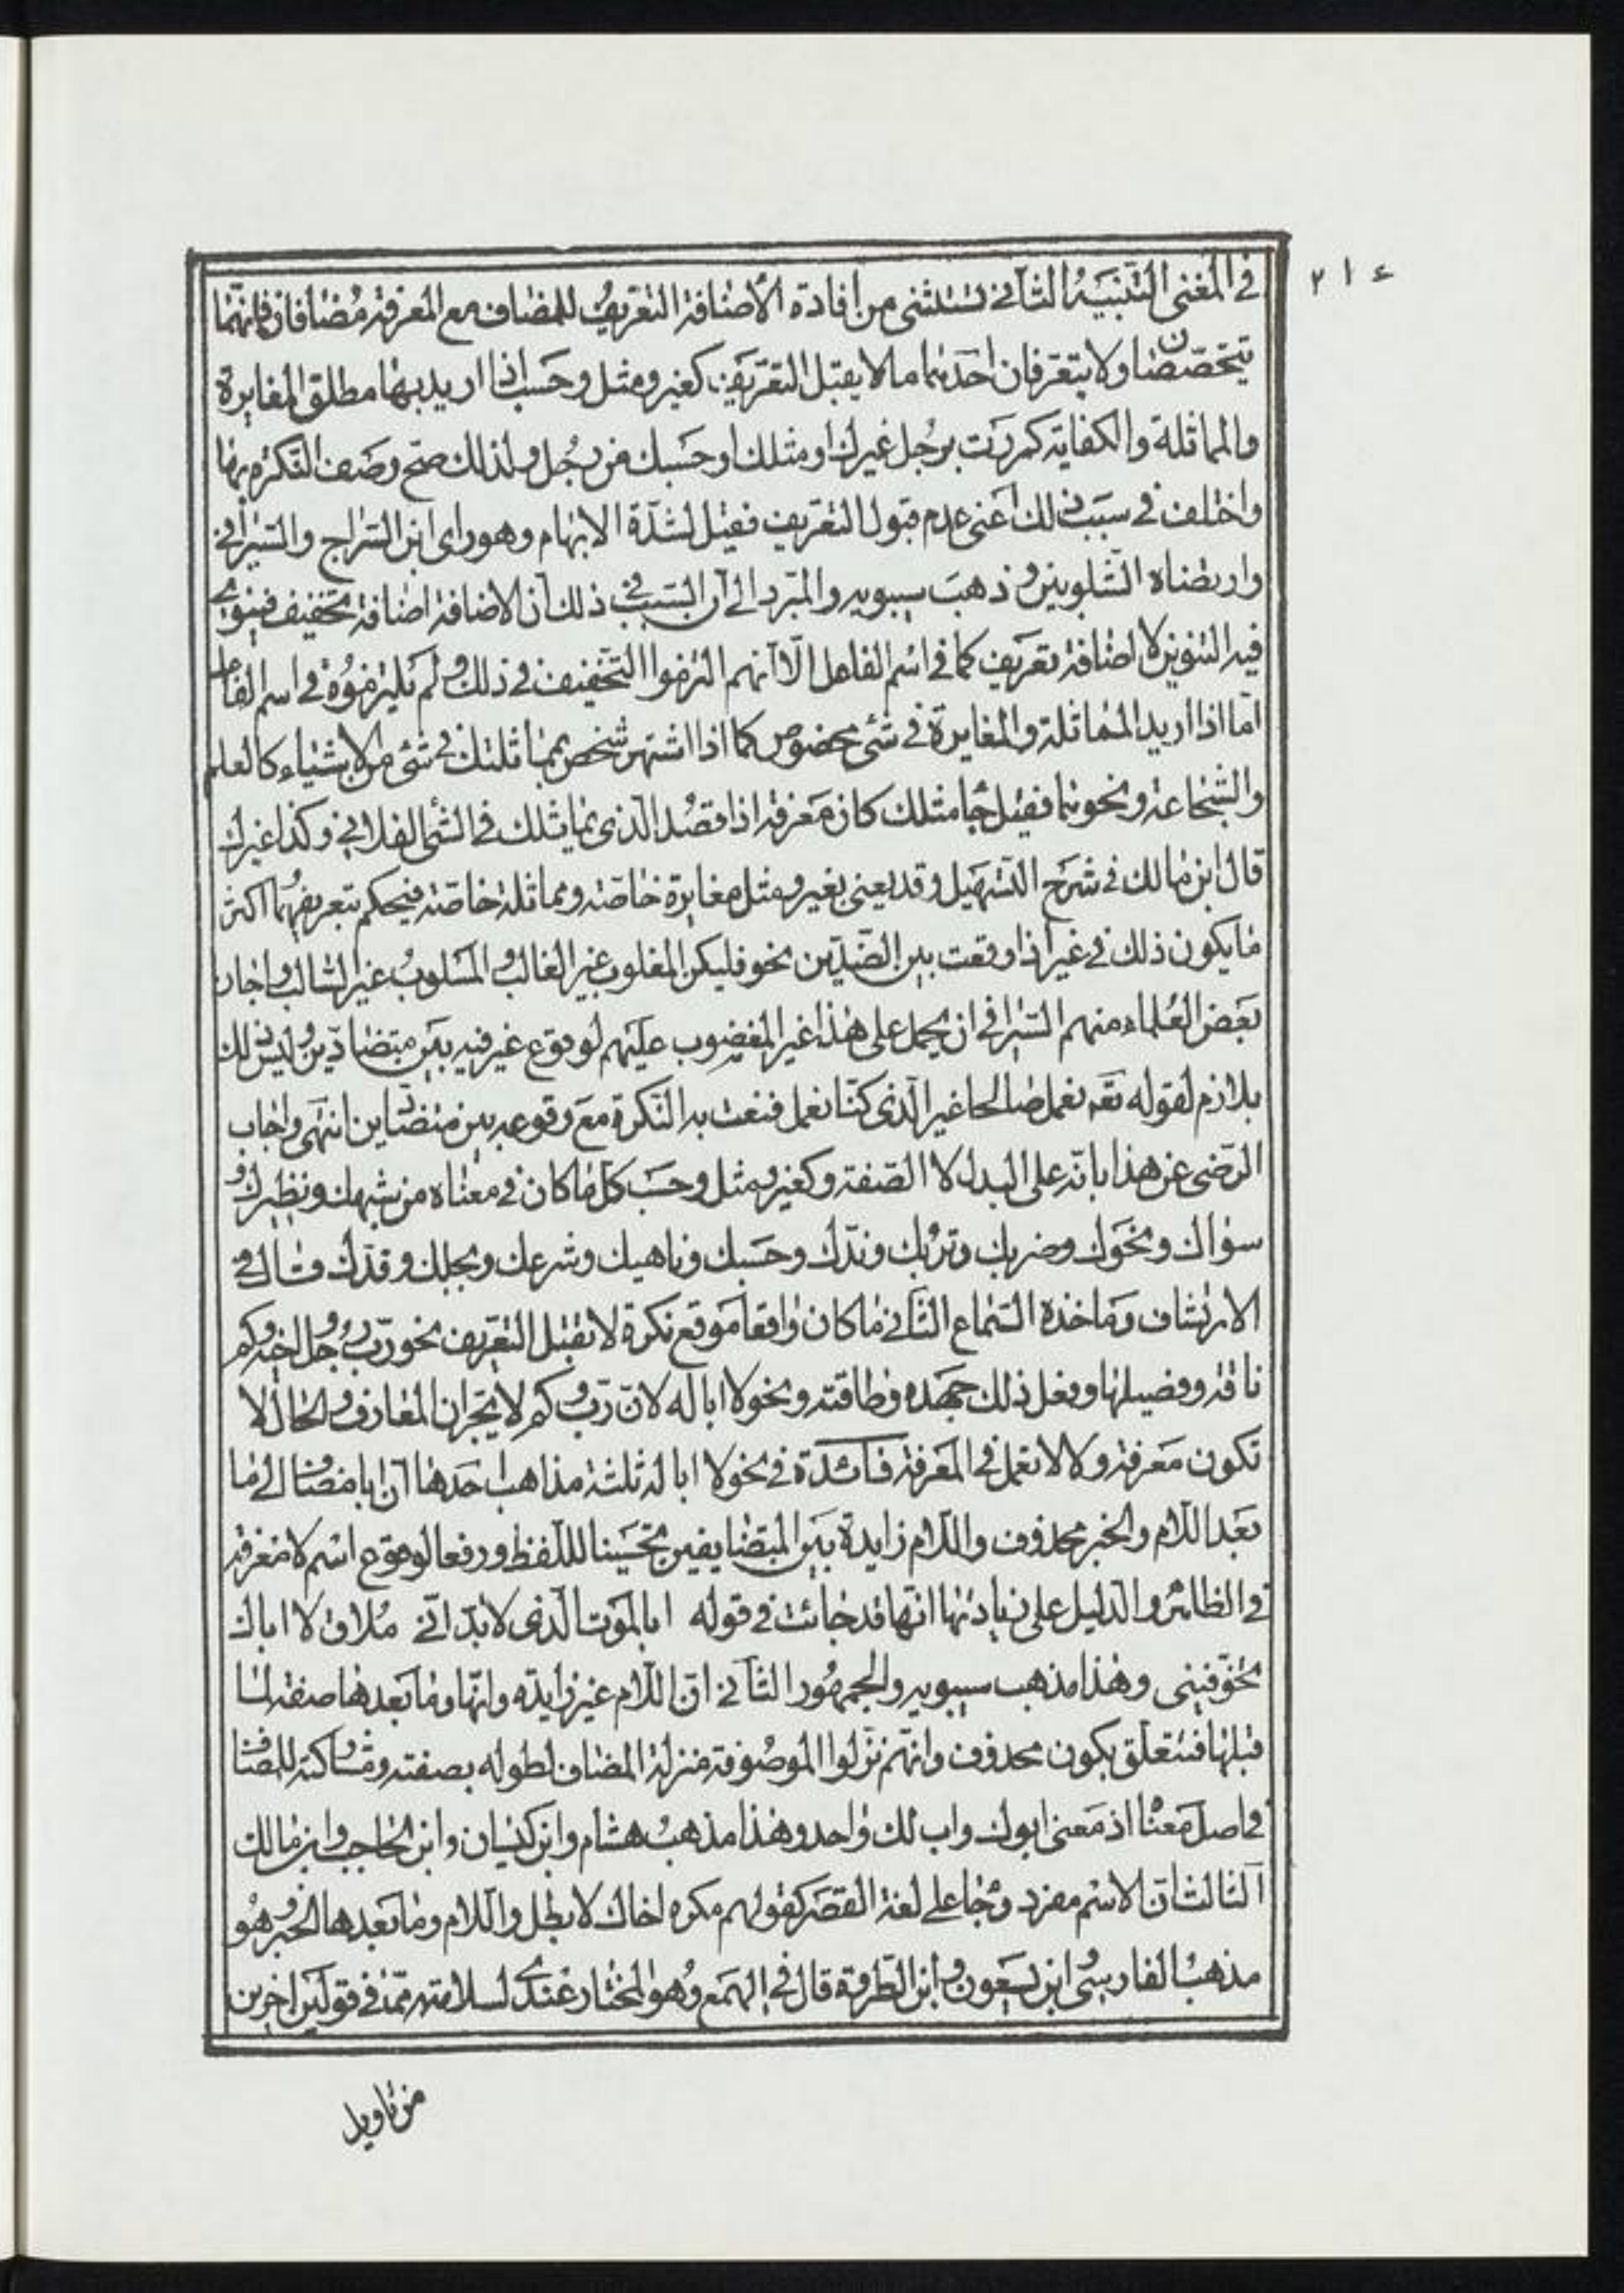 ٢١٤
في المغنى التنبيه الثاني تستثنى من افادة الاضافة التعريف للمضاف مع المعرفة مضافان فانهما
يتخصصان ولا يتعرفان احدهما ما لا يقبل التعريف كغير ومثل وحسب اذا اريد بها مطلق المغايرة
والمماثلة والكفاية كمررت برجل غيرك او مثلك او حسبك من رجل ولذلك صح وصف النكرة بها
واختلف في سبب ذلك اعنى عدم قبول التعريف فقيل لشدة الابهام وهو راى ابن السراج والسيرافي
وارتضاه الشلوبين وذهب سيبويه والمبرد الى ان السبب في ذلك ان الاضافة اضافة تخفيف فينوى
فيه التنوين لا اضافة تعريف كما في اسم الفاعل الا انهم التزموا التخفيف في ذلك ولم يلتزموه في اسم الفاعل
اما اذا اريد المماثلة والمغايرة في شئ مخصوص كما اذا اشتهر شخص بمماثلتك في شئ من الاشياء كالعلم
والشجاعة ونحوهما فقيل جا مثلك كان معرفة اذا قصد الذى يماثلك في الشئ الفلاني وكذا غيرك
قال ابن مالك في شرح التسهيل وقد يعنى بغير ومثل مغايرة خاصة ومماثلة خاصة فيحكم بتعريفهما اكثر
ما يكون ذلك في غير اذا وقعت بين الضدين نحو فليكن المغلوب غير الغالب والمسلوب غير السالب واجاز
بعض العلماء منهم السيرافي ان يحمل على هذا غير المغضوب عليهم لوقوع غير فيه بين متضادين وليس ذلك
بلازم لقوله تعه نعمل صالحا غير الذى كنا نعمل فنعت به النكرة مع وقوعه بين متضادين انتهى واجاب
الرضى عن هذا بانه على البدل لا الصفة وكغير ومثل وحسب كل ما كان في معناه من شبهك ونظيرك و
سواك ونحوك وضربك وتربك وندك وحسبك وناهيك وشرعك وبجلك وقدك قال في
الارتشاف وماخذه السماع الثاني ما كان واقعا موقع نكرة لا يقبل التعريف نحو رب رجل واخيه وكم
ناقة وفصيلها وفعل ذلك جهده وطاقته ونحو لا ابا له لان رب وكم لا يجران المعارف والحال لا
تكون معرفة ولا لا تعمل في المعرفة فائدة في نحو لا ابا له ثلثة مذاهب احدها ان ابا مضاف الى ما
بعد اللام والخبر محذوف واللام زايدة بين المتضايفين تحسينا لللفظ ورفعا لوقوع اسم لا معرفة
في الظاهر والدليل على زيادتها انها قد جائت في قوله ابالموت الذى لا بد اني ملاق لا اباك
تخوفينى وهذا مذهب سيبويه والجمهور الثاني ان اللام غير زايده وانها وما بعدها صفة لما
قبلها فتتعلق بكون محذوف وانهم نزلوا الموصوفة منزلة المضاف لطوله بصفته ومشاكته للمضاف
في اصل معناه اذ معنى ابوك واب لك واحد وهذا مذهب هشام وابن كيسان وابن الحاجب وابن مالك
الثالث ان الاسم مفرد وجا على لغة القصر كقولهم مكره اخاك لا بطل واللام وما بعدها الخبر وهو
مذهب الفارسى ابن يسعون وابن الطراوة قال في الهمع وهو المختار عندى لسلامته مما في قولين اخرين
من تاويل